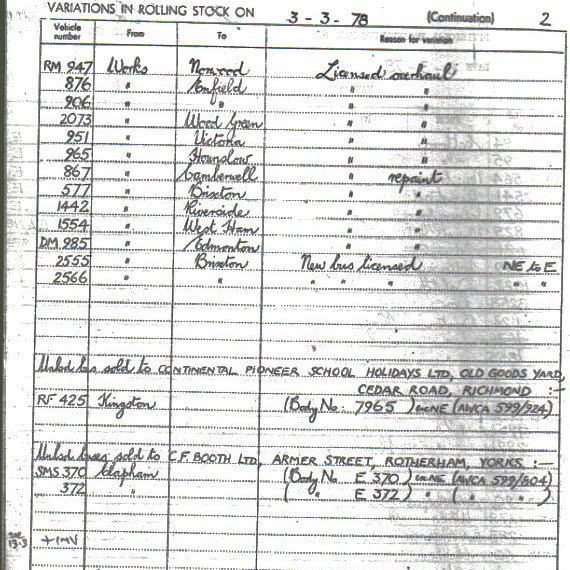 VARIATIONS IN ROLLING STOCK ON 3-3-78 (Continuation) 2
Vehicle number From To Reason for variation
RM 947 Works Norwood Licensed overhaul
876 " Enfield " "
906 " " " "
2073 " Wood Green " "
951 " Victoria " "
965 " Hounslow " "
867 " Camberwell " repaint
577 " Brixton " "
1442 " Riverside " "
1554 " West Ham " "
DM 985 " Edmonton " "
2555 " Brixton New bus licensed NE to E
2566 " " " " " " "
Unlsd bus sold to CONTINENTAL PIONEER SCHOOL HOLIDAYS LTD, OLD GOODS YARD,
CEDAR ROAD, RICHMOND :-
RF 425 Kingston (Body No: 7965) NE (AWCA 599/924)
Unlsd buses sold to C.F. BOOTH LTD, ARMER STREET, ROTHERHAM, YORKS :-
SMS 370 Clapham (Body No E 370) NE (AWCA 599/804)
372 " ( " E 372) " ( " )
13.3